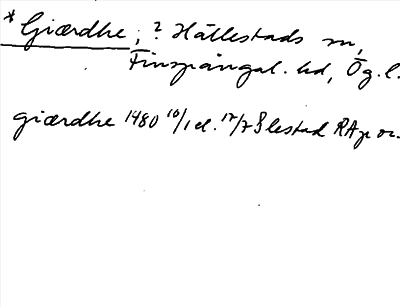 * Giærdhe, ? Hällestads sn,
Finspångal. hd, Ög. l.
giærdhe 1480 10/1 el. 17/7 Ølestad RAp or.